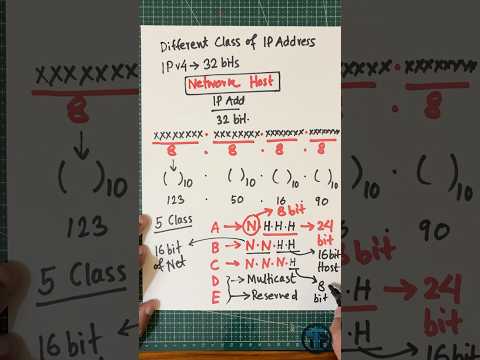 Different Class of IP Address
IPv4 → 32 bits
Network Host
IP Add
32 bit.
xxxxxxxx . xxxxxxxx . xxxxxxxx . xxxxxxxx
8 . 8 . 8 . 8
( )10 . ( )10 . ( )10 . ( )10
123 . 50 . 16 . 90
5 Class
8 bit
A → N.H.H.H → 24 bit
16 bit of Net
B → N.N.H.H → 16 bit Host
C → N.N.N.H → 8 bit
D → Multicast
E → Reserved
xxxxxxx
8
( )10
123
5 Class
16 bit
90
.H → 24
.H bit
16 bit